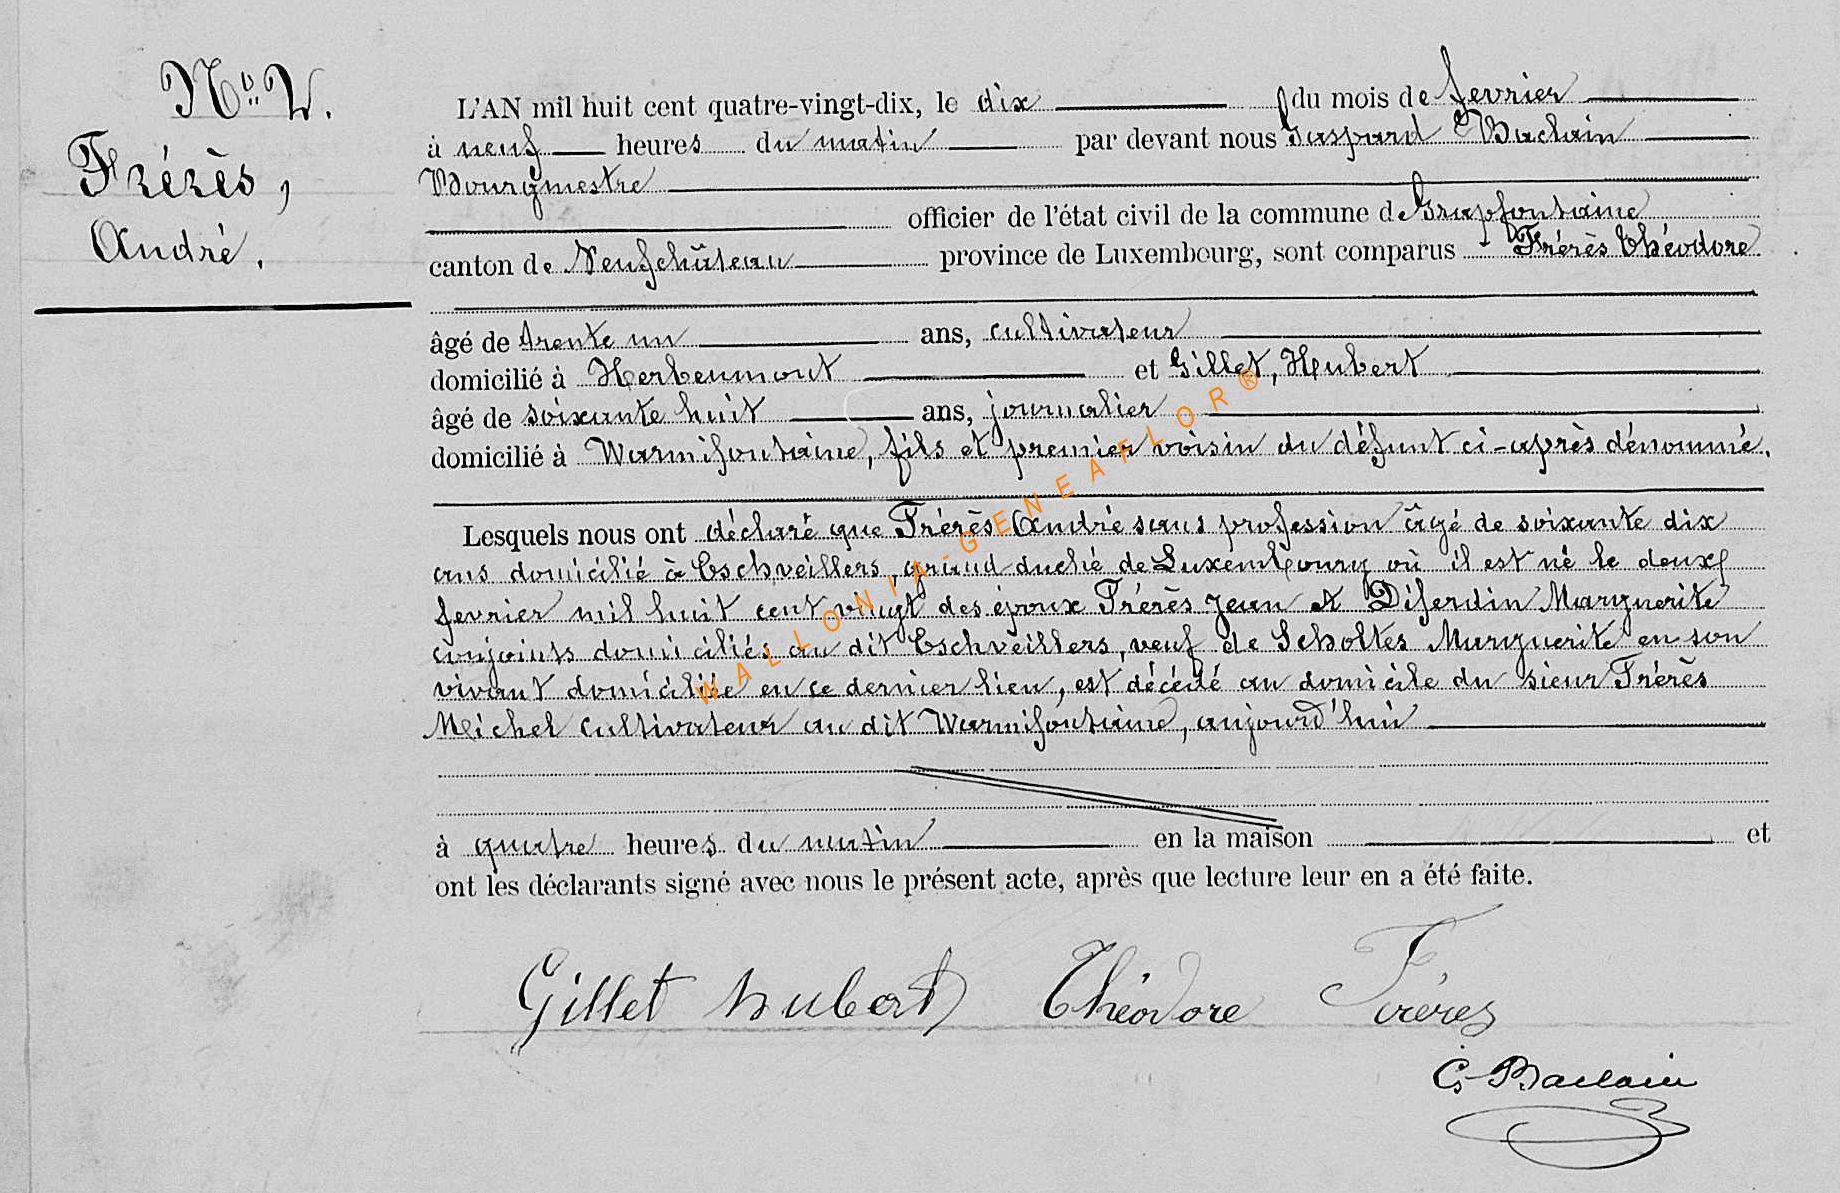 No. V.
Frérès,
André.
L'AN mil huit cent quatre-vingt-dix, le dix du mois de fevrier
à neuf heures du matin par devant nous Gaspard Baclain
Bourgmestre
officier de l'état civil de la commune de Grapfontaine
canton de Neufchâteau province de Luxembourg, sont comparus Frérès Théodore
âgé de trente un ans, cultivateur
domicilié à Herbeumont et Gillet, Hubert
âgé de soixante huit ans, journalier
domicilié à Warmifontaine, fils et premier voisin du défunt ci-après dénommé.
Lesquels nous ont déclaré que Frérès André sans profession âgé de soixante dix
ans domicilié à Eschveillers, grand duché de Luxembourg où il est né le deux
fevrier mil huit cent vingt des époux Frérès Jean et Diferdin Marguerite
conjoints domiciliés au dit Eschveillers, veuf de Scholtes Marguerite en son
vivant domiciliée en ce dernier lieu, est décédé au domicile du sieur Frérès
Michel cultivateur au dit Warmifontaine, aujourd'hui
à quatre heures du matin en la maison et
ont les déclarants signé avec nous le présent acte, après que lecture leur en a été faite.
Gillet hubert Théodore Fréres
G. Baclain
WALLONIA-GENEAFLOR®